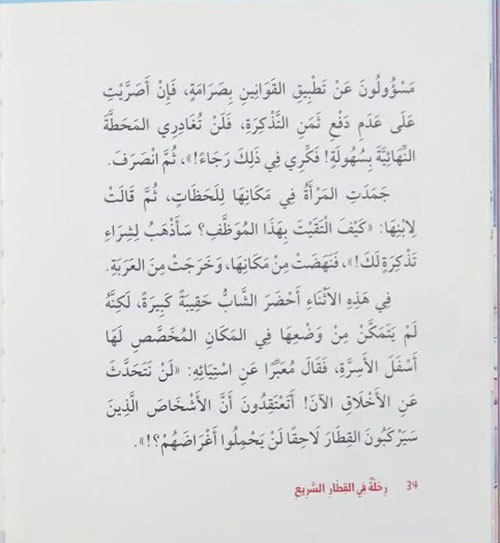 مَسْؤُولُونَ عَنْ تَطْبِيقِ القَوَانِينِ بِصَرَامَةٍ، فَإِنْ أَصَرَّيْتِ
عَلَى عَدَمِ دَفْعِ ثَمَنِ التَّذْكِرَةِ، فَلَنْ تُغَادِرِي المَحَطَّةَ
النِّهَائِيَّةَ بِسُهُولَةٍ! فَكِّرِي فِي ذَلِكَ رَجَاءً!»، ثُمَّ انْصَرَفَ.
جَمَدَتِ المَرْأَةُ فِي مَكَانِهَا لِلَحَظَاتٍ، ثُمَّ قَالَتْ
لِابْنِهَا: «كَيْفَ الْتَقَيْتَ بِهَذَا المُوَظَّفِ؟ سَأَذْهَبُ لِشِرَاءِ
تَذْكِرَةٍ لَكَ!»، فَنَهَضَتْ مِنْ مَكَانِهَا، وَخَرَجَتْ مِنَ العَرَبَةِ.
فِي هَذِهِ الأَثْنَاءِ أَحْضَرَ الشَّابُّ حَقِيبَةً كَبِيرَةً، لَكِنَّهُ
لَمْ يَتَمَكَّنْ مِنْ وَضْعِهَا فِي المَكَانِ المُخَصَّصِ لَهَا
أَسْفَلَ الأَسِرَّةِ، فَقَالَ مُعَبِّرًا عَنِ اسْتِيَائِهِ: «لَنْ نَتَحَدَّثَ
عَنِ الأَخْلَاقِ الآنَ! أَتَعْتَقِدُونَ أَنَّ الأَشْخَاصَ الَّذِينَ
سَيَرْكَبُونَ القِطَارَ لَاحِقًا لَنْ يَحْمِلُوا أَغْرَاضَهُمْ؟!».
34 رِحْلَةٌ فِي القِطَارِ السَّرِيعِ